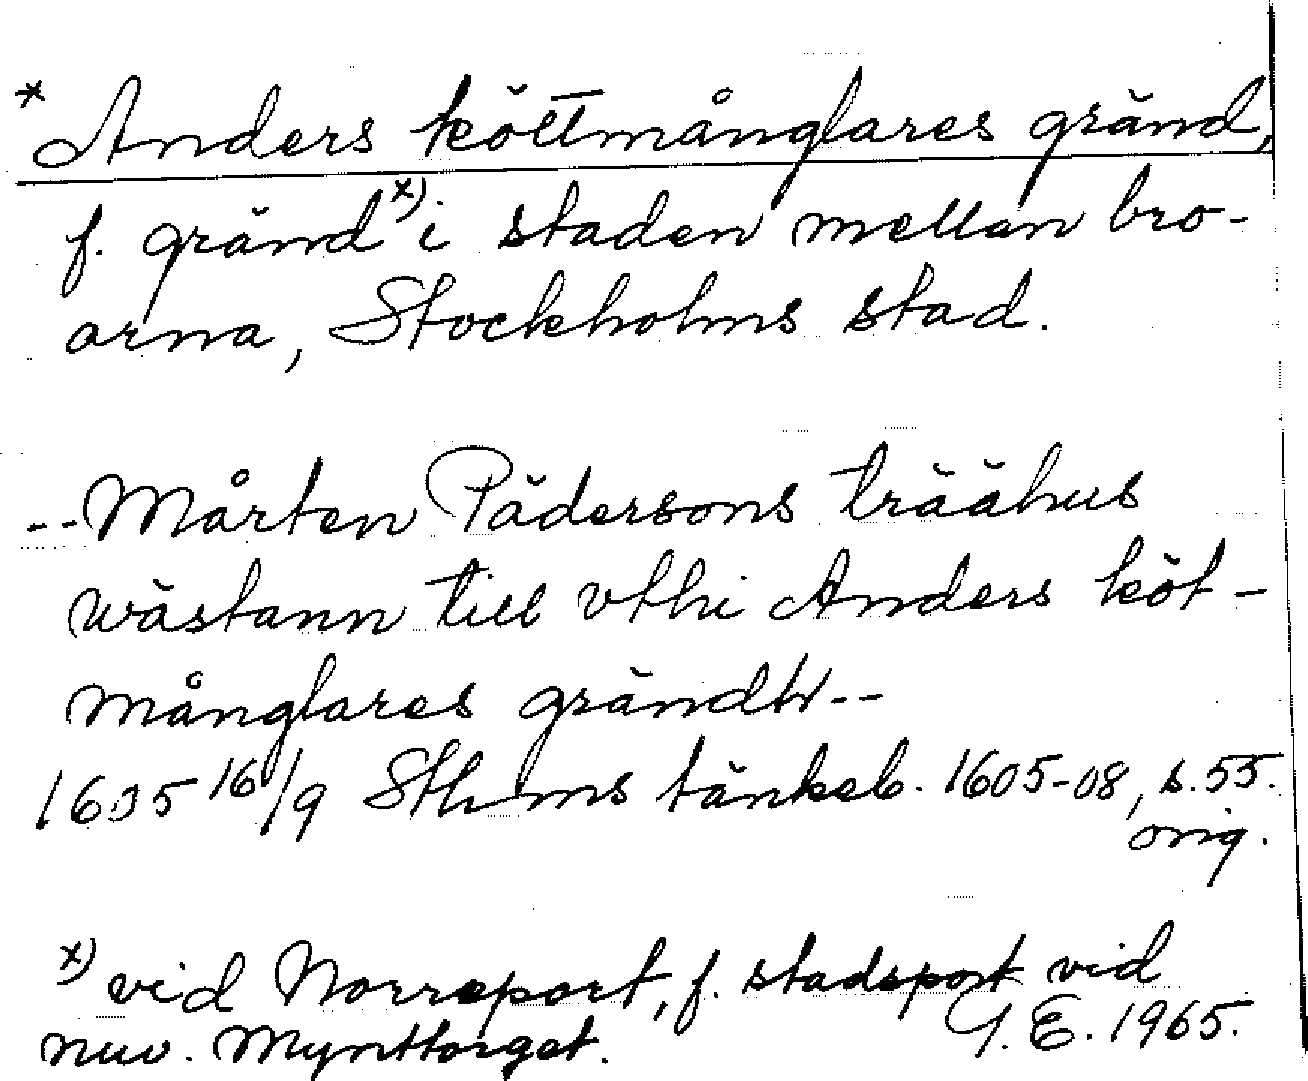 * Anders köttmånglares gränd,
f. gränd x) i staden mellan bro-
arna, Stockholms stad.
--Mårten Pädersons träähus
wästann till vthi Anders köt-
månglares grändh--
1605 16/9 Sthlms tänkeb. 1605-08, s.55.
orig.
x) vid Norreport, f. stadsport vid
nuv. Mynttorget. G.E. 1965.